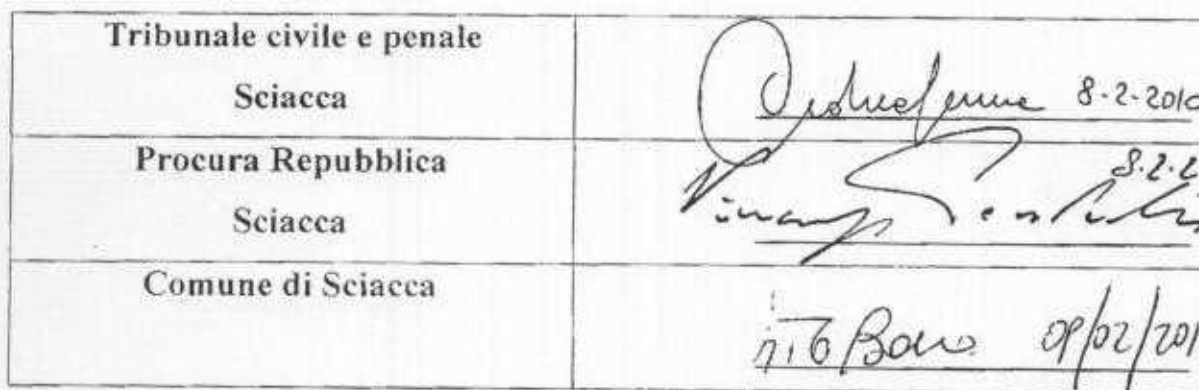 Tribunale civile e penale
Sciacca
8-2-201
Procura Repubblica
Sciacca
8.2.2
Comune di Sciacca
Bono 09/02/201